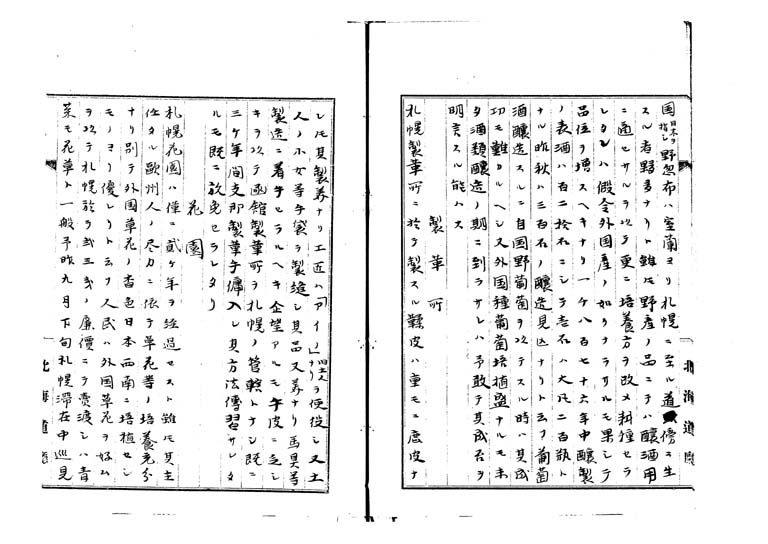 国日本ヲ指シ野忽布ハ室蘭ヨリ札幌ニ至ル道傍ニ生
スル者夥多ナリト雖モ野産ノ品ニテハ醸酒用
ニ適セサルヲ以テ更ニ培養方ヲ改メ耕種セラ
レタシ假令外国産ノ如クナラサルモ果シテ
品位ヲ増スヘキナリ一ケ八百七十六年中醸製
ノ表酒ハ百二拾石ニシテ壱石ハ大凡二百听ト
ナル昨秋ハ三百石ノ醸造見込ナリト云フ葡萄
酒醸造スルニ自国野葡萄ヲ以テスル時ハ其成
功モ難カルヘシ又外国種葡萄培植盛ナルモ未
タ酒類醸造ノ期ニ到ラサレハ予敢テ其成否ヲ
明言スル能ハス
製革所
札幌製革所ニ於テ製スル鞣皮ハ重モニ鹿皮ナ
北海道廳
レモ其製善ナリ工匠ハ「アイノ」ナリヲ使役シ又土
人ノ小女等手袋ヲ製縫シ其品又善ナリ馬具等
製造ニ着手セラルヘキ企望アルモ牛皮ニ乏シ
キヲ以テ函館製革所ヲ札幌ノ管轄トナシ既ニ
三ケ年間支那製革手傭入レ其方法傳習サレタ
ルモ既ニ放免セラレタリ
花園
札幌花園ハ僅ニ貳ケ年ヲ経過セスト雖モ其主
任タル歐州人ノ尽力ニ依テ草花等ノ培養充分
ナリ別テ外国草花ノ香色日本西南ニ培植セシ
モノヨリ優レリト云フ人民ハ外国草花ヲ好ム
ヲ以テ札幌於テ貳三貳ノ廉價ニテ賣渡シハ青
菜モ花草ト一般予昨九月下旬札幌滞在中巡見
北海道廳